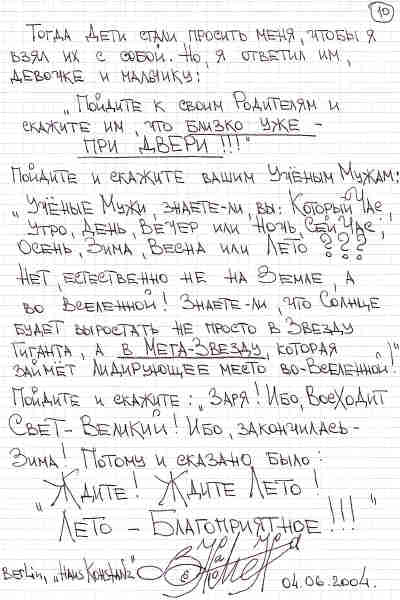 10
Тогда Дети стали просить меня, чтобы я
взял их с собой. Но, я ответил им,
девочке и мальчику:
„Пойдите к своим Родителям и
скажите им, что близко уже –
ПРИ ДВЕРИ!!!"
Пойдите и скажите вашим Учёным Мужам:
„Учёные Мужи, знаете-ли, вы: Который Час,
Утро, День, Вечер или Ночь, Сей Час;
Осень, Зима, Весна или Лето ???
Нет, естественно не на Земле, а
во Вселенной! Знаете-ли, что Солнце
будет выростать не просто в Звезду
Гиганта, а в Мега-Звезду, которая
займёт лидирующее место во-Вселенной!"
Пойдите и скажите: „Заря! Ибо, Восходит
Свет-Великий! Ибо, закончилась-
Зима! Потому и сказано было:
„Ждите! Ждите Лето!
Лето – Благоприятное!!!"
Berlin, „Haus Konstanz"
04.06.2004.